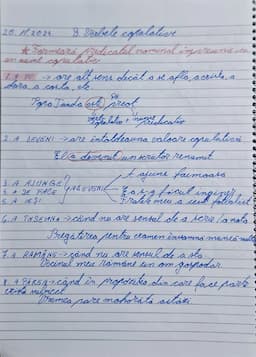 20.11.2024. Verbele copulative
* Formează predicatul nominal împreună cu
un nume predicativ
1. A FI → are alt sens decât a se afla, a exista, a
dura, a costa, etc.
Popa Tanda (este) preot
verb copulativ + nume predicativ
2. A DEVENI → are întotdeauna valoare copulativă
El a devenit un scriitor renumit
3. A AJUNGE
4. A SE FACE } A DEVENI
5. A IEȘI
A ajuns faimoasă
S-a făcut inginer
Fratele meu a ieșit fotbalist
6. A ÎNSEMNA → când nu are sensul de a scrie/a nota
Pregătirea pentru examen înseamnă muncă multă
7. A RĂMÂNE → când nu are sensul de a sta
Vecinul meu rămâne un om gospodar
8. A PĂREA → când în propoziția din care face parte
există subiect
Vremea pare mohorâtă astăzi